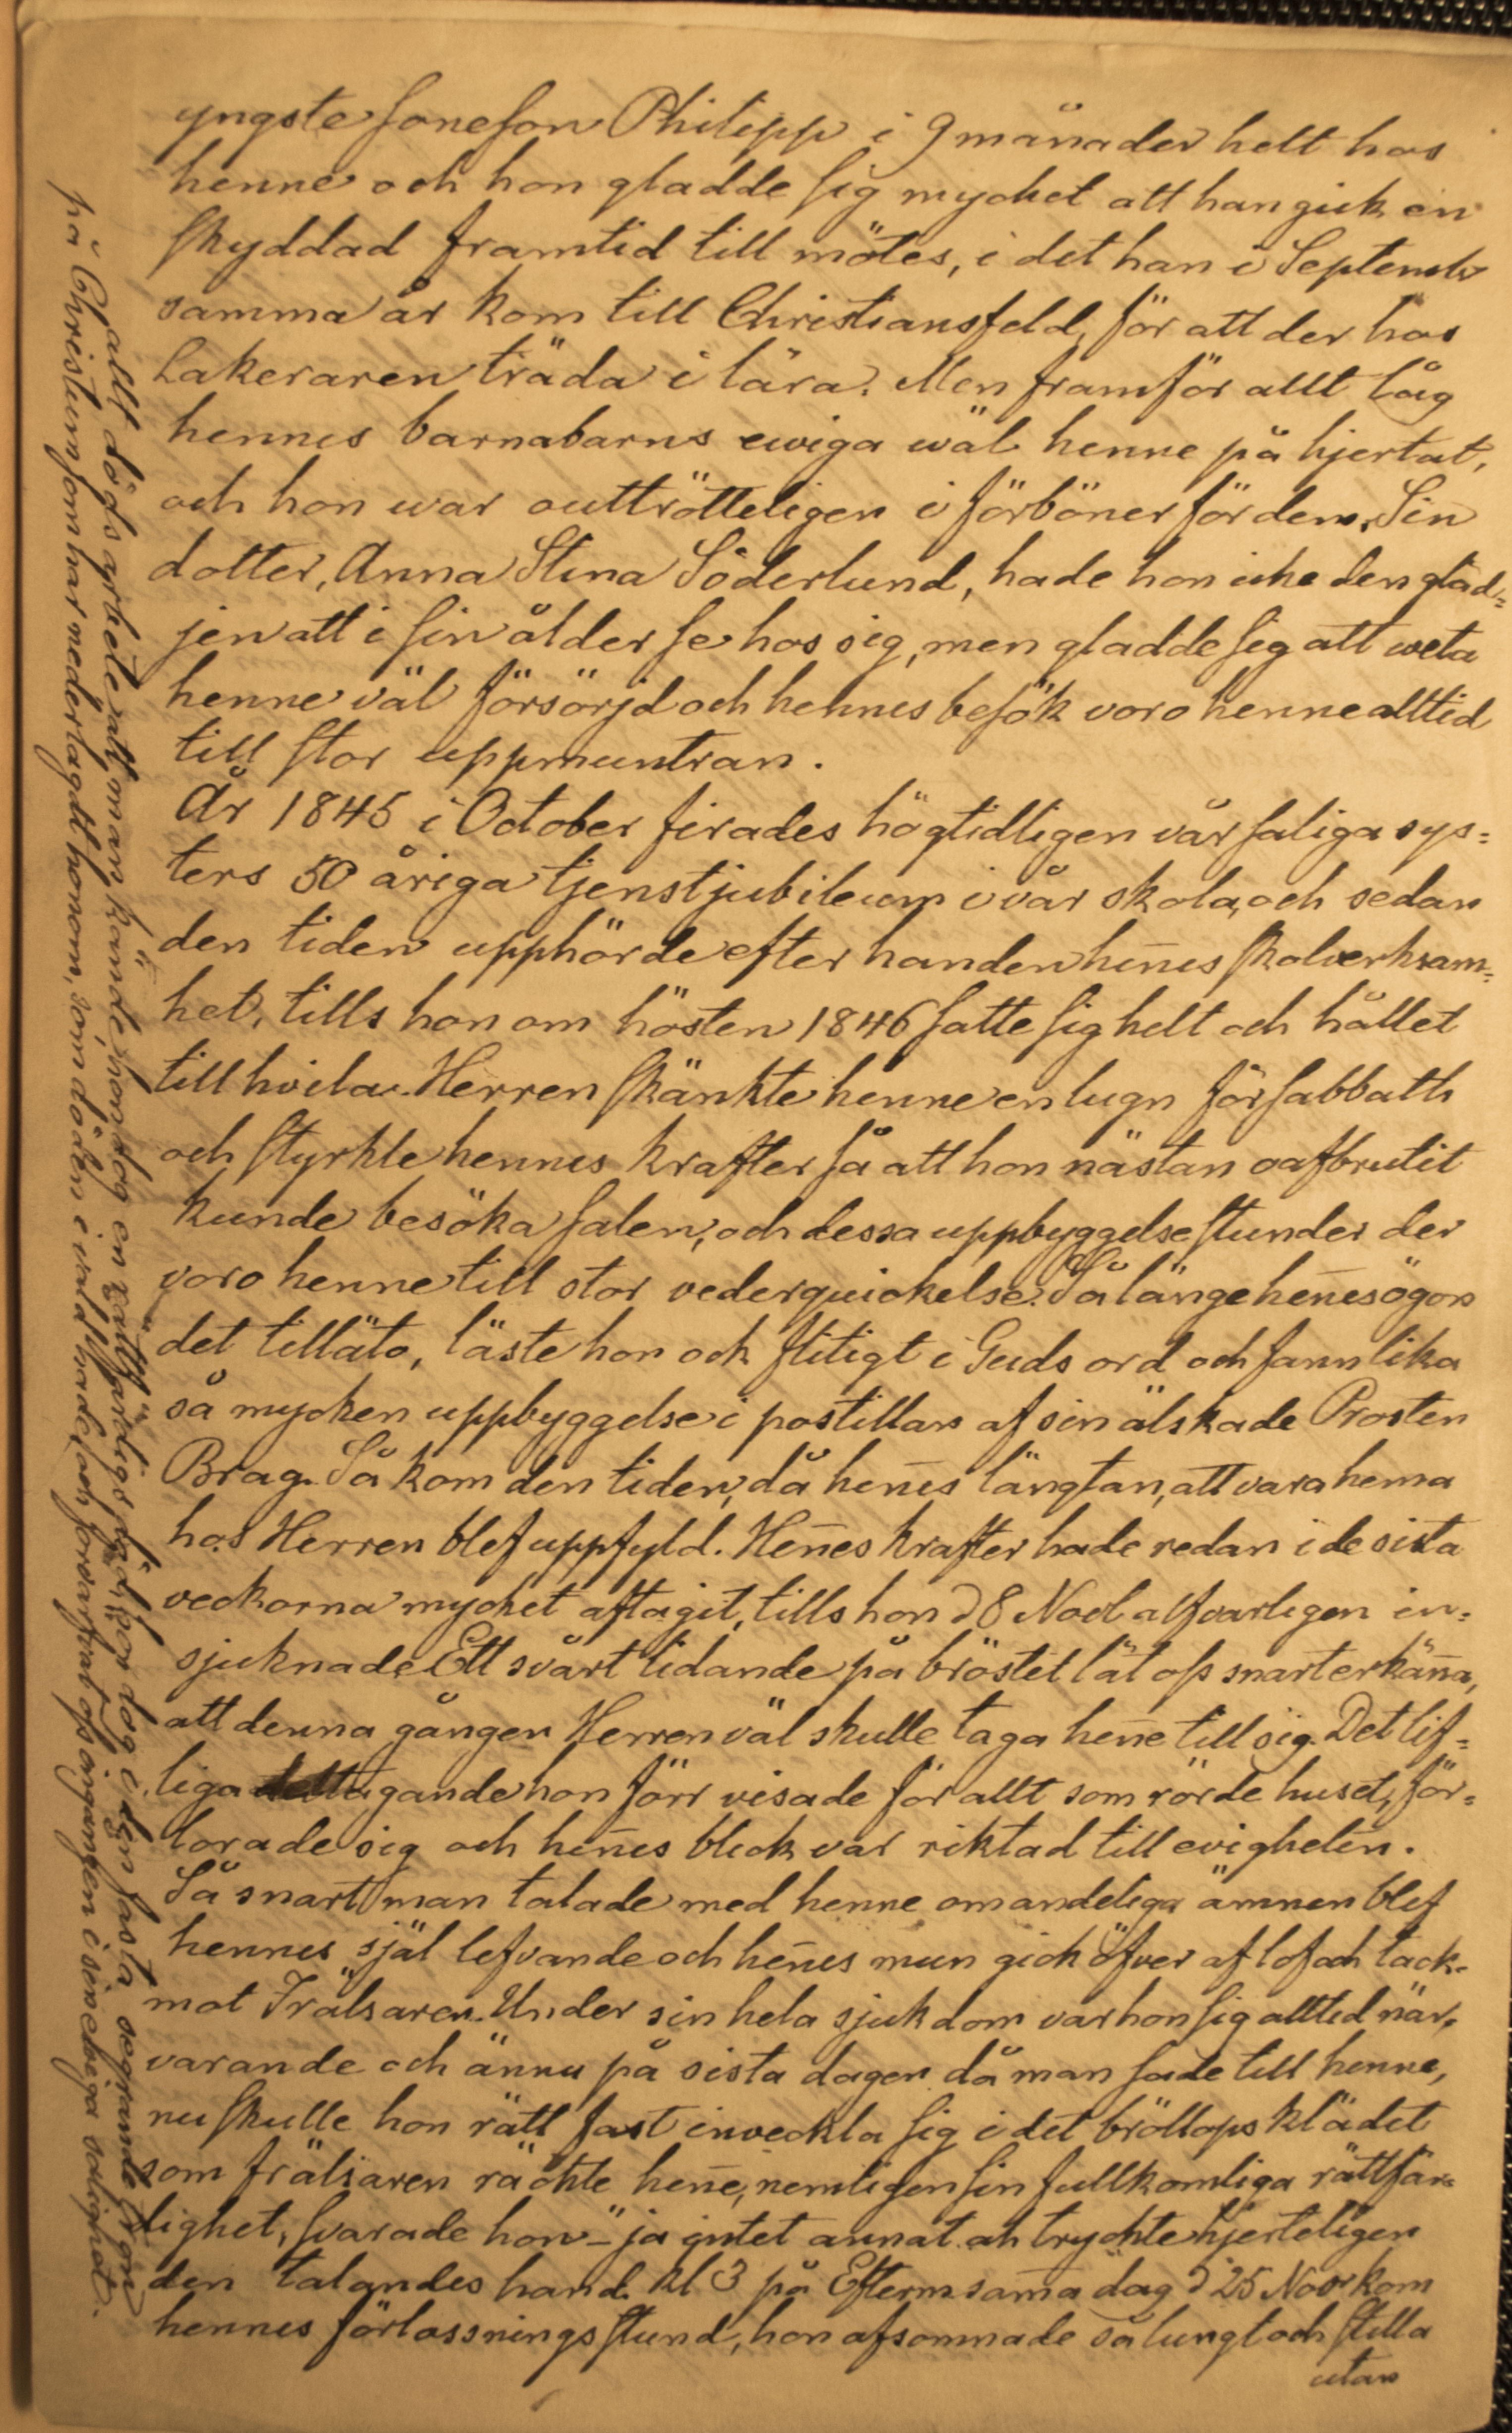 yngste soneson Philipp i 9 månader helt hos
henne och hon gladde sig mycket att han gick en
skyddad framtid till mötes, i det han i Septemb
samma år kom till Christiansfeld, för att der hos
Lakeraren träda i lära. Men framför allt låg
hennes barnabarns ewiga wäl henne på hjertat,
och hon war outtrötteligen i förböner för dem. Sin
dotter, Anna Stina Söderlund, hade hon icke den gläd=
jen att i sin ålder se hos sig, men gladde sig att weta
henne väl försörjd och hennes besök voro henne alltid
till stor uppmuntran.
År 1845 i October firades högtidligen vår saliga sys=
ters 50 åriga tjenstjubileum i vår skola, och sedan
den tiden upphörde efter handen hen̄es skolverksam=
het, tills hon om hösten 1846 satte sig helt och hållet
till hvila. Herren skänkte henne en lugn försabbath
och styrkte hennes krafter så att hon nästan oafbrutit
kunde besöka salen, och dessa uppbyggelsestunder der
voro henne till stor vederquickelse. Så länge hen̄es ögon
det tilläto, läste hon ock flitigt i Guds ord och fann lika
så mycken uppbyggelse i postillan af sin älskade Prosten
Brag. Så kom den tiden, då hen̄es längtan, att vara hema
hos Herren blef uppfyld. Hen̄es krafter hade redan i de sista
veckorna mycket aftagit, tills hon d 8 Novb alfvarligen in=
sjuknade Ett svårt lidande på bröstet lät oss snart erkän̄a,
att denna gången Herren väl skulle taga hen̄e till sig. Det lif=
liga deltagande hon förr visade för allt som rörde huset, för=
lorade sig och hen̄es blick var riktad till evigheten.
Så snart man talade med henne om andeliga ämnen blef
hennes själ lefvande och hen̄es mun gick öfver af lof och tack
mot Frälsaren. Under sin hela sjukdom var hon sig alltid när=
varande och ännu på sista dagen då man sade till henne,
nu skulle hon rätt fast inveckla sig i det bröllops klädet
som frälsaren räckte hen̄e, nemligen sin fullkomliga rättfär=
dighet, svarade hon - "ja intet annat" och tryckte hjerteligen
den talandes hand. Kl 3 på Efterm sam̄a dag d 25 Novr kom
hennes förlossnings stund, hon afsomnade så lungt och stilla
utan
allt döds arbete att man kände hon dog en rättfärdigs död, hon dog i den fasta segrande tron
på Christum som har nederlagdt honom, som döden i våld hade, och förvärfvat oss ingången i sin eviga salighet.